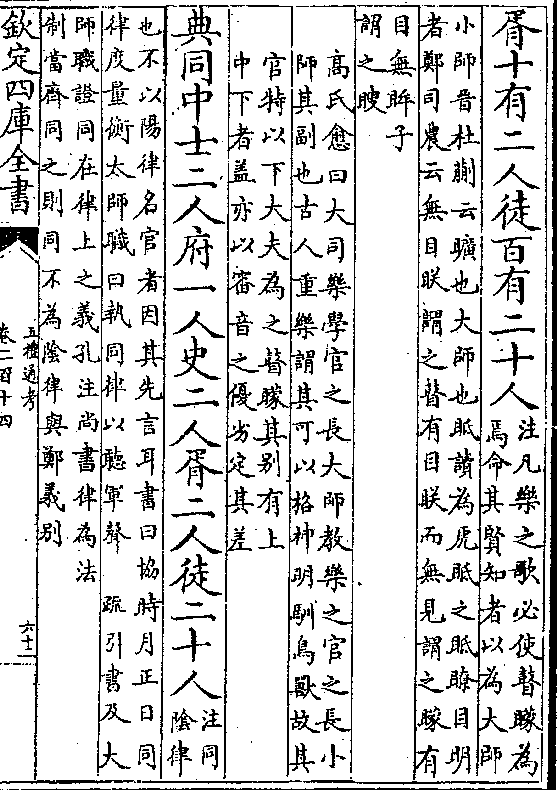 胥十有二人徒百有二十人
注凡樂之歌必使瞽矇為
焉命其賢知者以為大師
小師晉杜蒯云曠也大師也眡讀為虎眡之眡瞭目明
者鄭司農云無目眹謂之瞽有目眹而無見謂之矇有
目無眸子
謂之瞍
高氏愈曰大司樂學官之長大師教樂之官之長小
師其副也古人重樂謂其可以格神明馴鳥獸故其
官特以下大夫為之瞽矇其别有上
中下者葢亦以審音之優劣定其差
典同中士二人府一人史二人胥二人徒二十人
注同
陰律
也不以陽律名官者因其先言耳書曰協時月正日同
律度量衡太師職曰執同律以聽軍聲 疏引書及大
師職證同在律上之義孔注尚書律為法
制當齊同之則同不為陰律與鄭義别
欽定四庫全書
五禮通考
卷二百十四
六十二